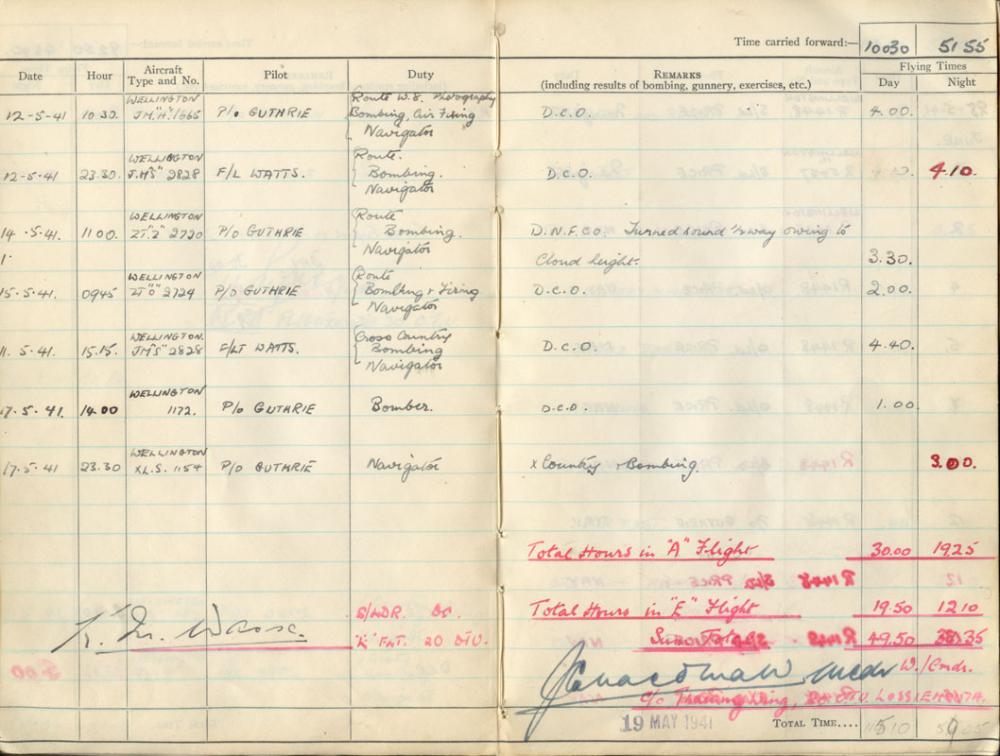 Time carried forward:— 10030 5155
Date Hour Aircraft Type and No. Pilot Duty REMARKS (including results of bombing, gunnery, exercises, etc.) Flying Times Day Night
12-5-41 10.30. WELLINGTON J.M."H" 1665 P/o GUTHRIE Route W.S. Photography Bombing, Air Firing Navigator D.C.O. 4.00.
12-5-41 23.30. WELLINGTON J.M"S" 2828 F/L WATTS. Route. Bombing. Navigator D.C.O. 4.10.
14-5-41. 1100. WELLINGTON ZT"Z" 2720 P/o GUTHRIE Route Bombing. Navigator D.N.F.C.O. Turned round ½ way owing to
Cloud height. 3.30.
15-5-41. 0945 WELLINGTON ZT"O" 2724 P/o GUTHRIE Route Bombing + Firing Navigator D.C.O. 2.00.
11.5-41. 15.15. WELLINGTON. JM"S" 2828 F/LT WATTS. Cross Country Bombing Navigator D.C.O. 4.40.
17-5-41 14.00 WELLINGTON 1172. P/o GUTHRIE Bomber. D.C.O. 1.00.
17-5-41 23.30 WELLINGTON XL.S. 1154 P/o GUTHRIE Navigator x Country + Bombing. 3.00.
Total Hours in "A" Flight 30.00 19.25
Total Hours in "E" Flight 19.50 12.10
S/LDR. OC.
"E" FLT. 20 OTU. 49.50
W./Cmdr.
c/o Training Wing, 20 O.T.U. LOSSIEMOUTH.
19 MAY 1941 TOTAL TIME....